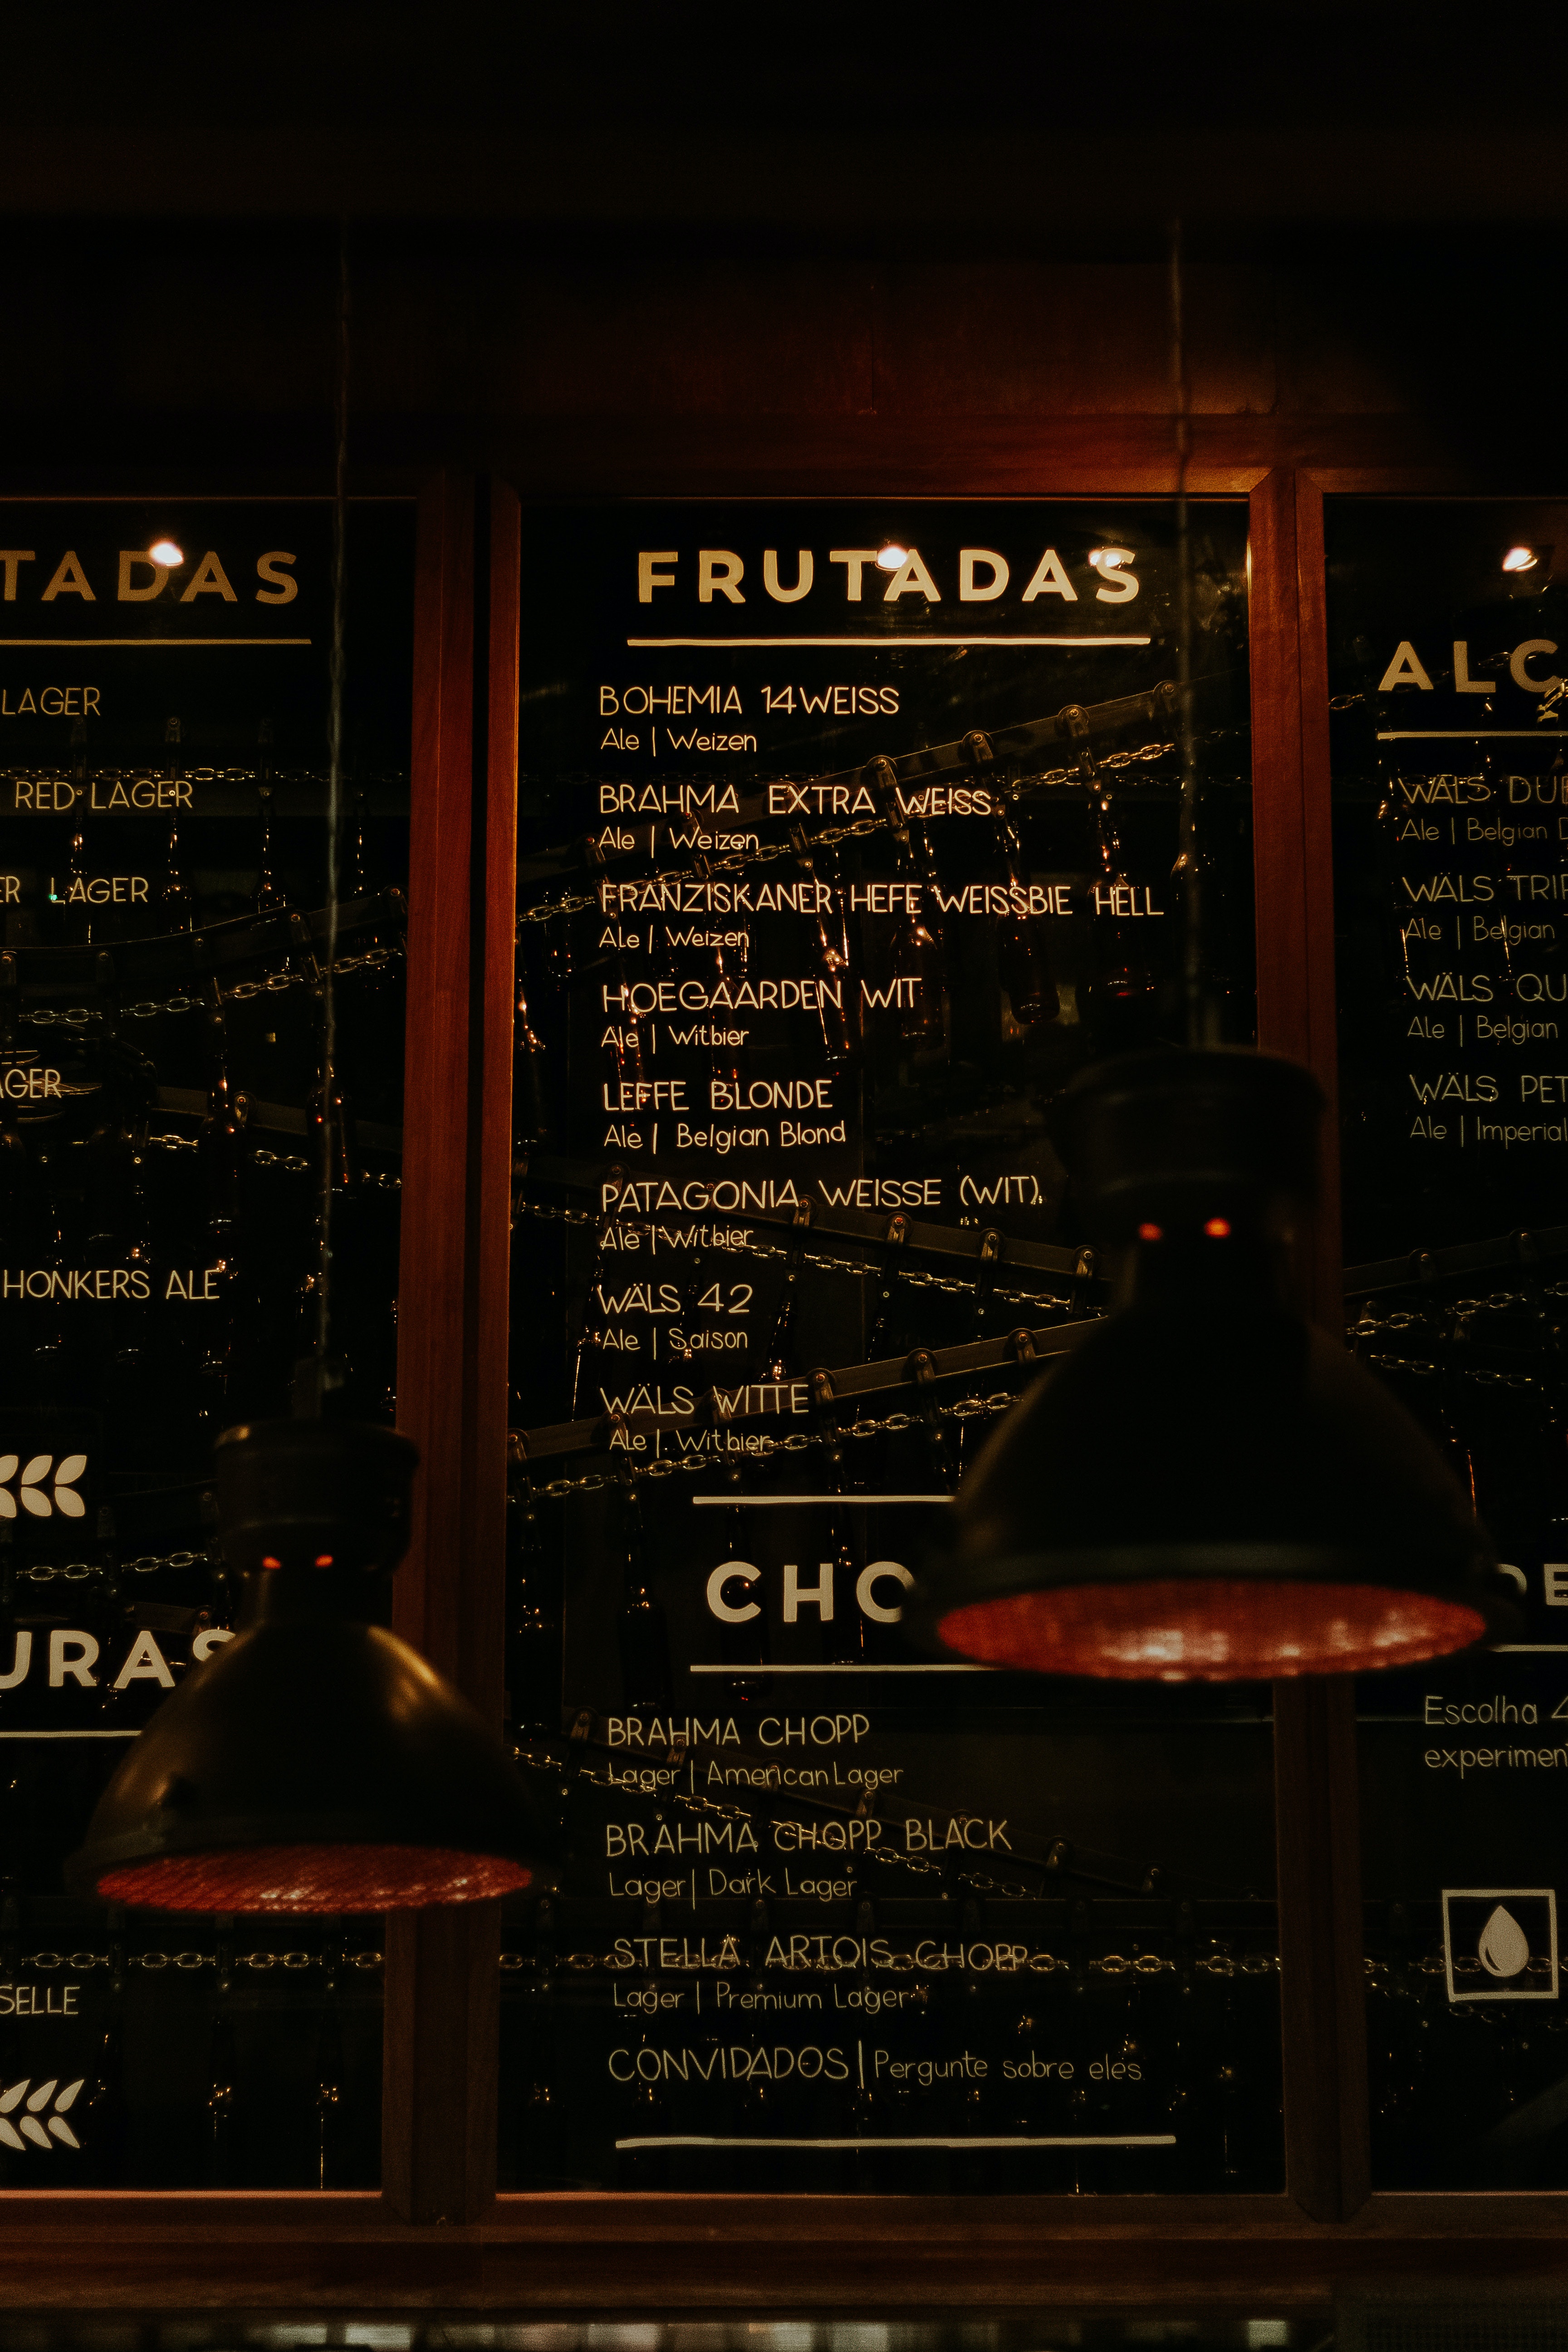 TADAS
LAGER
RED LAGER
ER LAGER
AGER
HONKERS ALE
URAS
SELLE
FRUTADAS
BOHEMIA 14WEISS
Ale | Weizen
BRAHMA EXTRA WEISS
Ale | Weizen
FRANZISKANER HEFE WEISSBIE HELL
Ale | Weizen
HOEGAARDEN WIT
Ale | Witbier
LEFFE BLONDE
Ale | Belgian Blond
PATAGONIA WEISSE (WIT)
Ale | Witbier
WÄLS 42
Ale | Saison
WÄLS WITTE
Ale | Witbier
CHO
BRAHMA CHOPP
Lager | American Lager
BRAHMA CHOPP BLACK
Lager | Dark Lager
STELLA ARTOIS CHOPP
Lager | Premium Lager
CONVIDADOS | Pergunte sobre eles
ALC
WÄLS DUB
Ale | Belgian D
WÄLS TRIP
Ale | Belgian
WÄLS QU
Ale | Belgian
WÄLS PET
Ale | Imperial
DE
Escolha 4
experimen